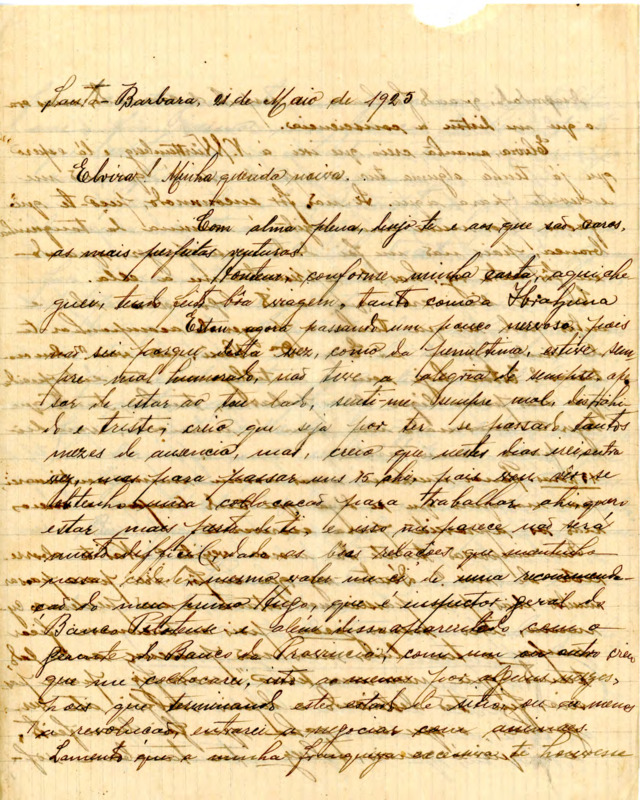 Santa-Barbara, 21 de Maio de 1925
Elvira! Minha querida noiva.
Com alma plena, te e aos que são caros,
as mais perfeitas venturas.
conforme minha carta, aqui che
guei, tendo feito bôa viagem, tanto como a
Estou agora passando um pouco nervoso, pois
não sei porque desta vez, como da penultima, estive sem
pre mal humorado, não tive a alegria de sempre, ape
sar de estar ao teu lado, senti-me sempre mal, distrahi
do e triste, creio que seja por ter se passado tantos
mezes de ausencia, mas, creio que nestes dias
irei, mas para passar uns 15 ahi, pois vou ver se
obtenho uma collocação para trabalhar ahi, quero
estar mais perto de ti e isso me parece não será
muito difficil, dado as bôas relações que mantenho
nessa cidade, mesmo valer me ei de uma recommenda
ção do meu primo Hugo, que é inspector geral do
Banco Pelotense e alem disso aparentado com o
gerente do Banco da Provincia, com um ou outro creio
que me collocarei, isto ao menos por alguns mezes,
pois que terminando este estado de sitio, ou ao menos
a revolução, entrarei a negociar com animaes.
Lamento que a minha franqueza excessiva te trouxesse